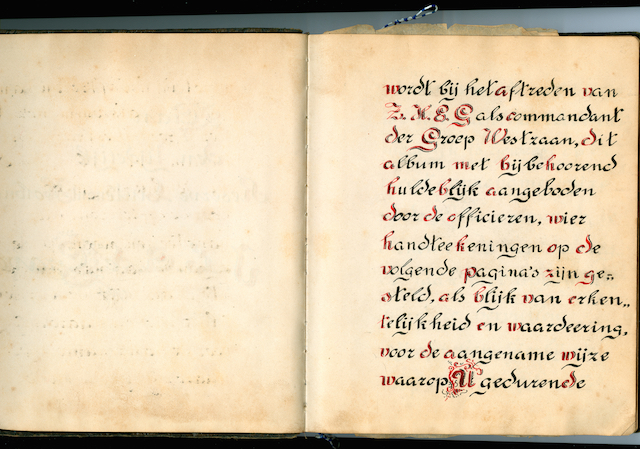 wordt bij het aftreden van
Z. H. E. G als commandant
der Groep Westraan, dit
album met bijbehoorend
huldeblijk aangeboden
door de officieren, wier
handteekeningen op de
volgende pagina's zijn ge„
steld, als blijk van erken„
telijkheid en waardeering,
voor de aangename wijze
waarop U gedurende